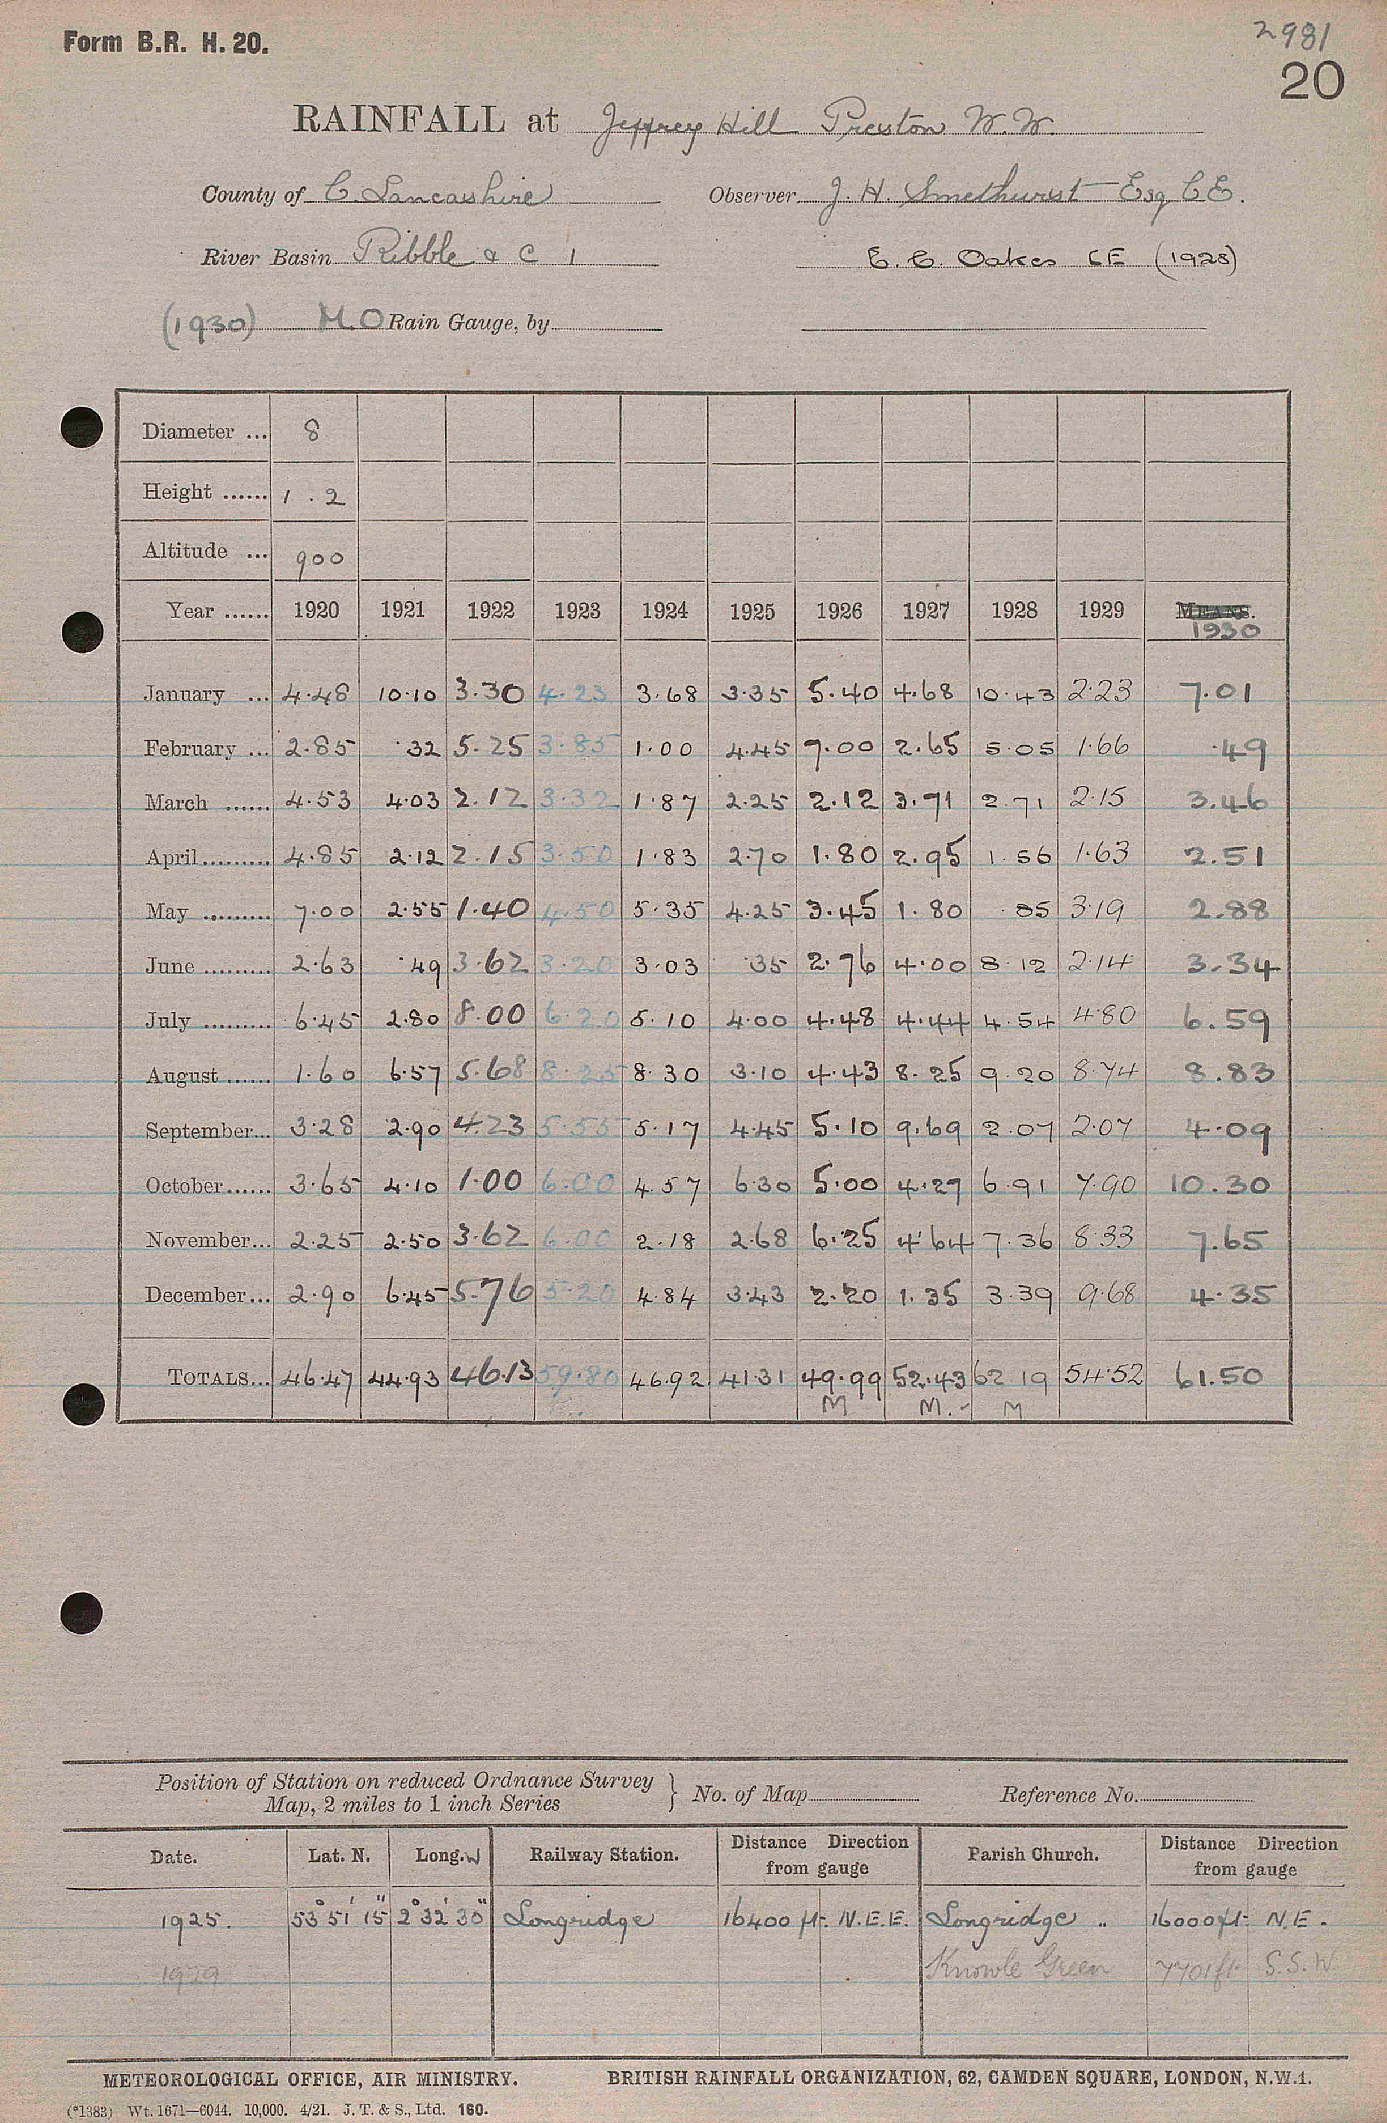 Form B.R. H. 20.
2981
20
RAINFALL at Jeffrey Hill Preston W.W.
County of C. Lancashire Observer J. H. Smethurst Esq CE.
River Basin Ribble & C 1 E. C. Oakes CE (1928)
(1930) M.O Rain Gauge, by
Diameter ... 8
Height ...... 1 . 2
Altitude ... 900
Year ...... 1920 1921 1922 1923 1924 1925 1926 1927 1928 1929 MEANS.
1930
January ... 4.48 10.10 3.30 4.23 3.68 3.35 5.40 4.68 10.43 2.23 7.01
February ... 2.85 .32 5.25 3.85 1.00 4.45 7.00 2.65 5.05 1.66 .49
March ...... 4.53 4.03 2.12 3.32 1.87 2.25 2.12 3.71 2.71 2.15 3.46
April......... 4.85 2.12 2.15 3.50 1.83 2.70 1.80 2.95 1.56 1.63 2.51
May ......... 7.00 2.55 1.40 4.50 5.35 4.25 3.45 1.80 .85 3.19 2.88
June ......... 2.63 .49 3.62 3.20 3.03 .35 2.76 4.00 8.12 2.14 3.34
July ......... 6.45 2.80 8.00 6.20 5.10 4.00 4.48 4.44 4.54 4.80 6.59
August ...... 1.60 6.57 5.68 8.25 8.30 3.10 4.43 8.25 9.20 8.74 8.83
September... 3.28 2.90 4.23 5.55 5.17 4.45 5.10 9.69 2.07 2.07 4.09
October...... 3.65 4.10 1.00 6.00 4.57 6.30 5.00 4.27 6.91 7.90 10.30
November... 2.25 2.50 3.62 6.00 2.18 2.68 6.25 4.64 7.36 8.33 7.65
December... 2.90 6.45 5.76 5.20 4.84 3.43 2.20 1.35 3.39 9.68 4.35
TOTALS... 46.47 44.93 46.13 59.80 46.92 41.31 49.99 52.43 62 19 54.52 61.50
M M.- M
Position of Station on reduced Ordnance Survey
Map, 2 miles to 1 inch Series } No. of Map Reference No.
Date. Lat. N. Long. W Railway Station. Distance Direction from gauge Parish Church. Distance Direction from gauge
1925. 53° 51' 15" 2° 32' 30" Longridge 16400 ft. N.E.E. Longridge .. 16000ft N.E.
1929 Knowle Green 7701ft. S.S.W.
METEOROLOGICAL OFFICE, AIR MINISTRY. BRITISH RAINFALL ORGANIZATION, 62, CAMDEN SQUARE, LONDON, N.W.1.
(*1383) Wt. 1671—6044. 10,000. 4/21. J. T. & S., Ltd. 160.